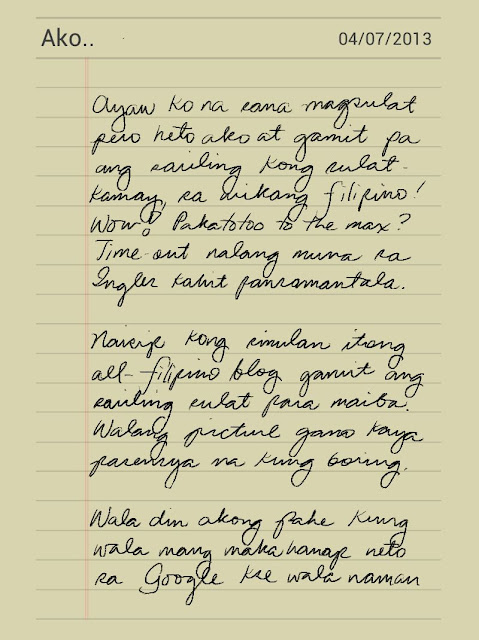 Ako.. 04/07/2013
Ayaw ko na sana magsulat
pero heto ako at gamit pa
ang sariling kong sulat-
kamay, sa wikang filipino!
Wow! Pakatotoo to the max?
Time-out nalang muna sa
Ingles kahit pansamantala.
Naisip kong simulan itong
all-filipino blog gamit ang
sariling sulat para maiba.
Walang picture gano kaya
pasensya na kung boring.
Wala din akong pake kung
wala mang makahanap neto
sa Google kse wala naman